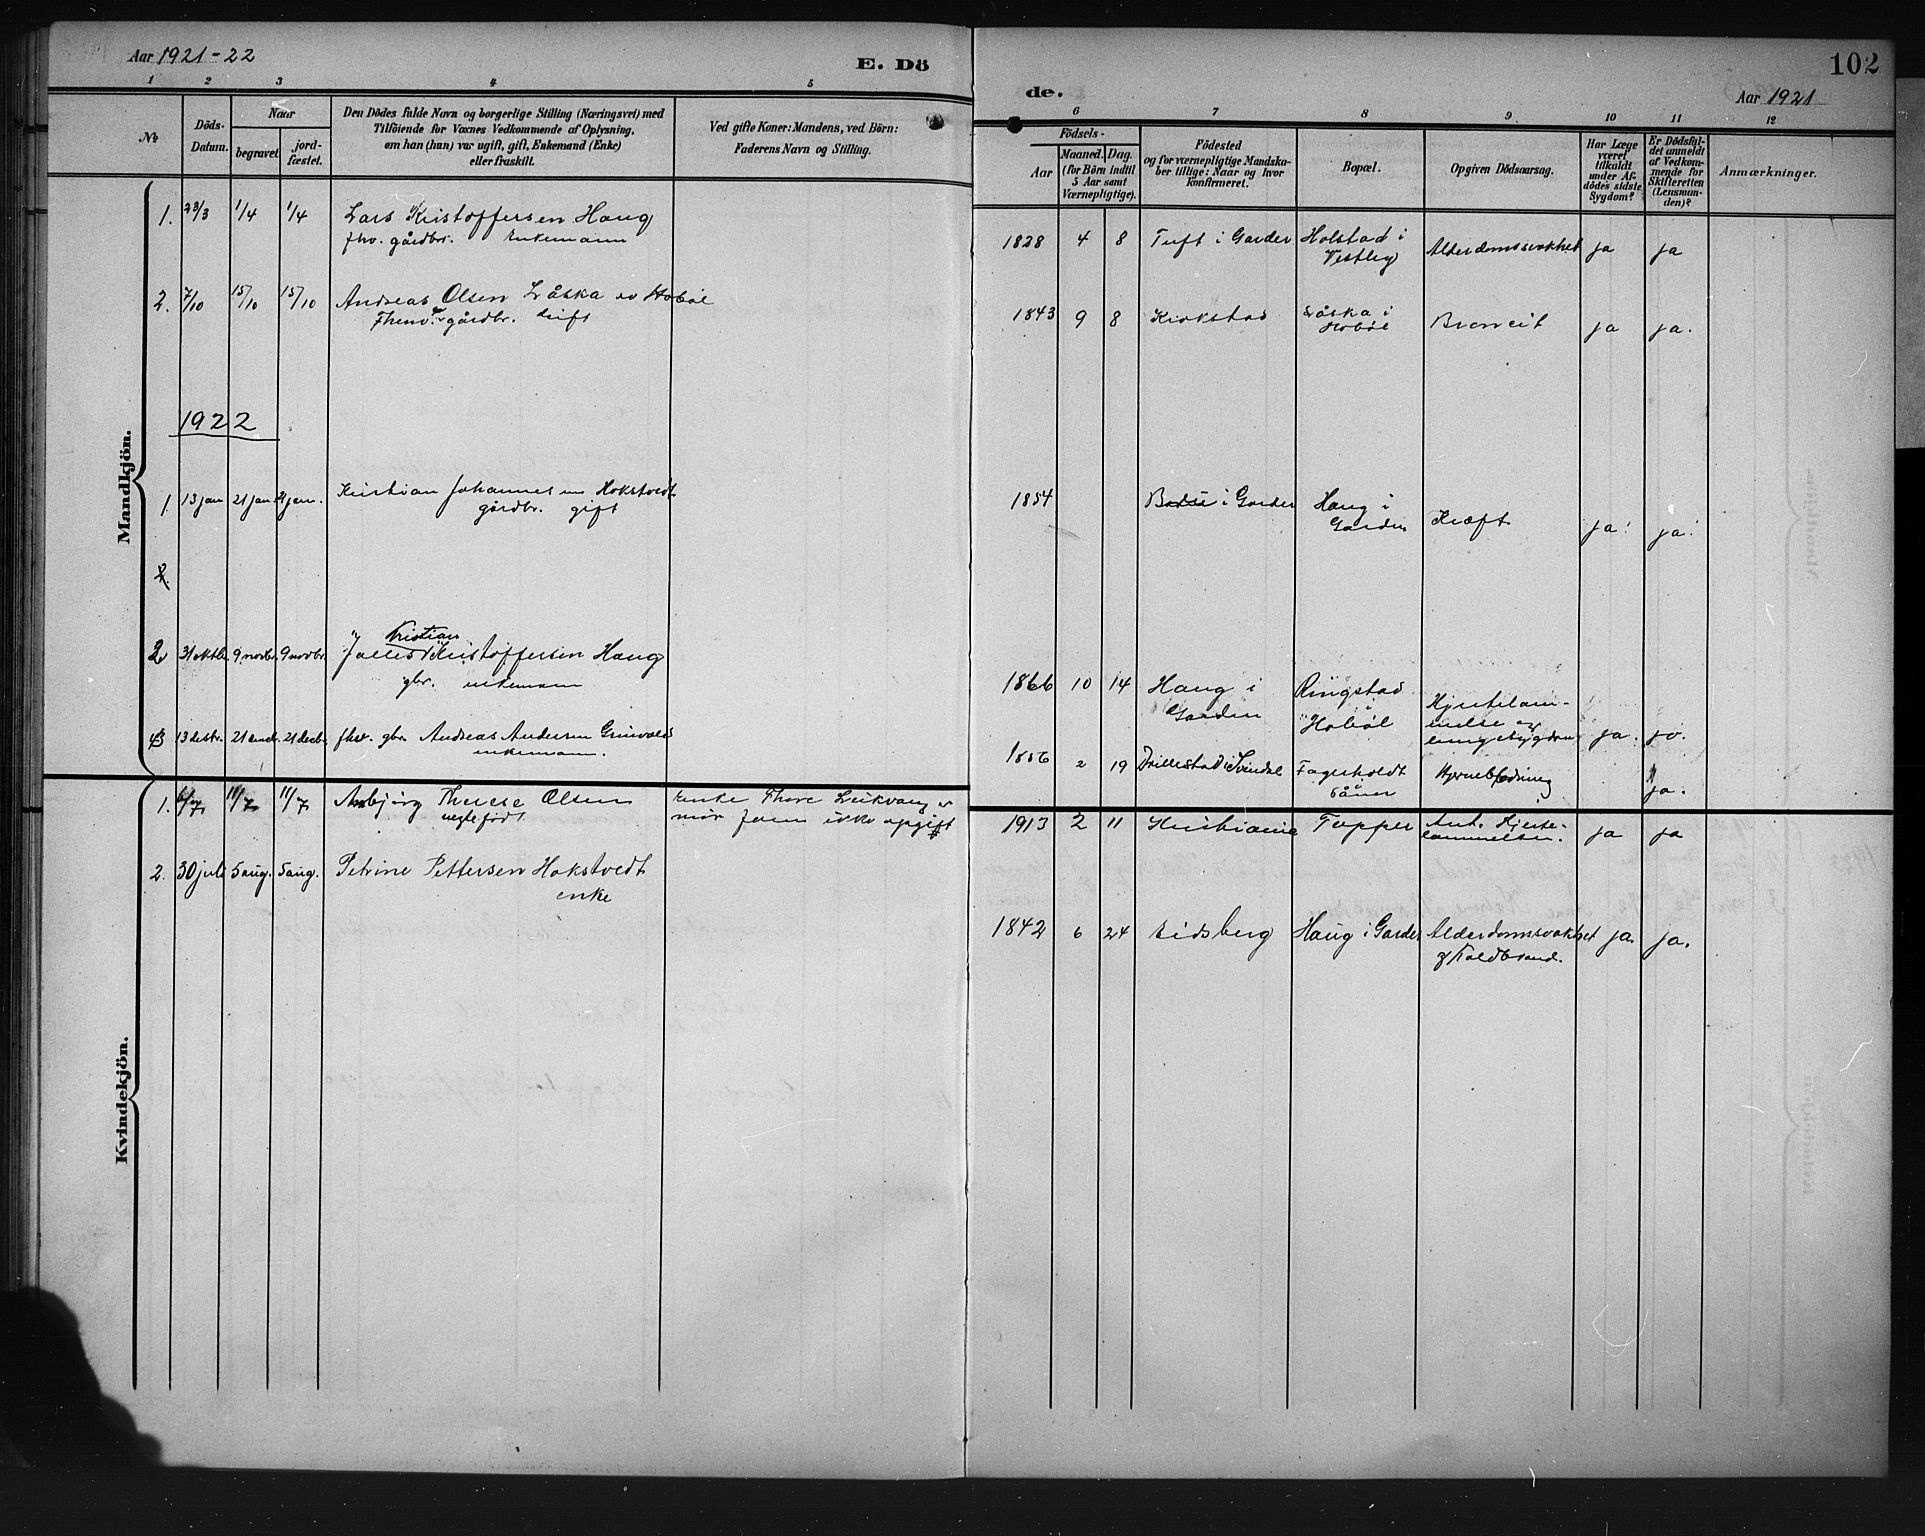 Aar 1921-22
E. Dö
1 2 3 4 5
№
Döds-
Datum.
Naar
begravet.
jord-
fæstet.
Den Dödes fulde Navn og borgerlige Stilling (Næringsvei) med
Tilföiende for Voxnes Vedkommende af Oplysning,
om han (hun) var ugift, gift, Enkemand (Enke)
eller fraskilt.
Ved gifte Koner: Mandens, ved Börn:
Faderens Navn og Stilling.
Mandkjön.
1. 23/3 1/4 1/4 Lars Kristoffersen Haug
fhv. gårdbr. Enkemann
2. 7/10 15/10 15/10 Andreas Olsen Låska av Hobøl
gårdbr.
1922
1 13 jan 21 jan. 21 jan. Kristian Johannes Hokstvedt
gårdbr. gift
2.
Kristian
2 31 oktbr. 9 novbr. 9 novbr. Kristoffersen Haug
gbr. enkemann
3 13 desbr. 21 decbr. 21 decbr. fhv. gbr. Andreas Andersen
enkemann.
Kvindekjön.
1. 6/7 11/7 11/7 Asbjörg Therese Olsen
uegte født
Enke Thore
mor farm ikke opgift
2. 30 juli 5 aug. 5 aug. Petrine Pettersen Hokstvedt
enke
102
de.
Aar 1921
6 7 8 9 10 11 12
Födsels-
Aar
Maaned. Dag.
(for Börn indtil
5 Aar samt
Værnepligtige).
Födested
og for værnepligtige Mandska-
ber tillige: Naar og hvor
Konfirmeret.
Bopæl.
Opgiven Dödsaarsag.
Har Læge
været
tilkaldt
under Af-
dödes sidste
Sygdom?
Er Dödsfal-
det anmeldt
af Vedkom-
mende for
Skifteretten
(Lensman-
den)?
Anmærkninger.
1828 4 8 Tuft i Garder Holstad i
Vestby Alderdomssvakhet ja ja
1843 9 8 Krokstad Låska i
Hobøl ja ja.
1854 i Garder Haug i
Garder Kræft ja! ja!
1866 10 14 Haug i
Garder Ringstad
i Hobøl Hjertelam-
melse og
ja. ja.
1856 2 19 Fagerholdt
Såner Hjerneblødning ja.
1913 2 11 Kristiania Topper Ant. Hjerte-
lammelse. ja ja
1842 6 24 Eidsberg Haug i Garder Alderdomssvakhet
og Koldbrand. ja. ja.